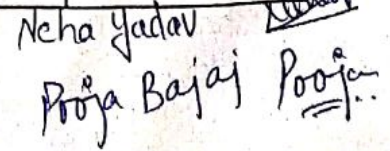 Neha Yadav
Pooja Bajaj Pooja